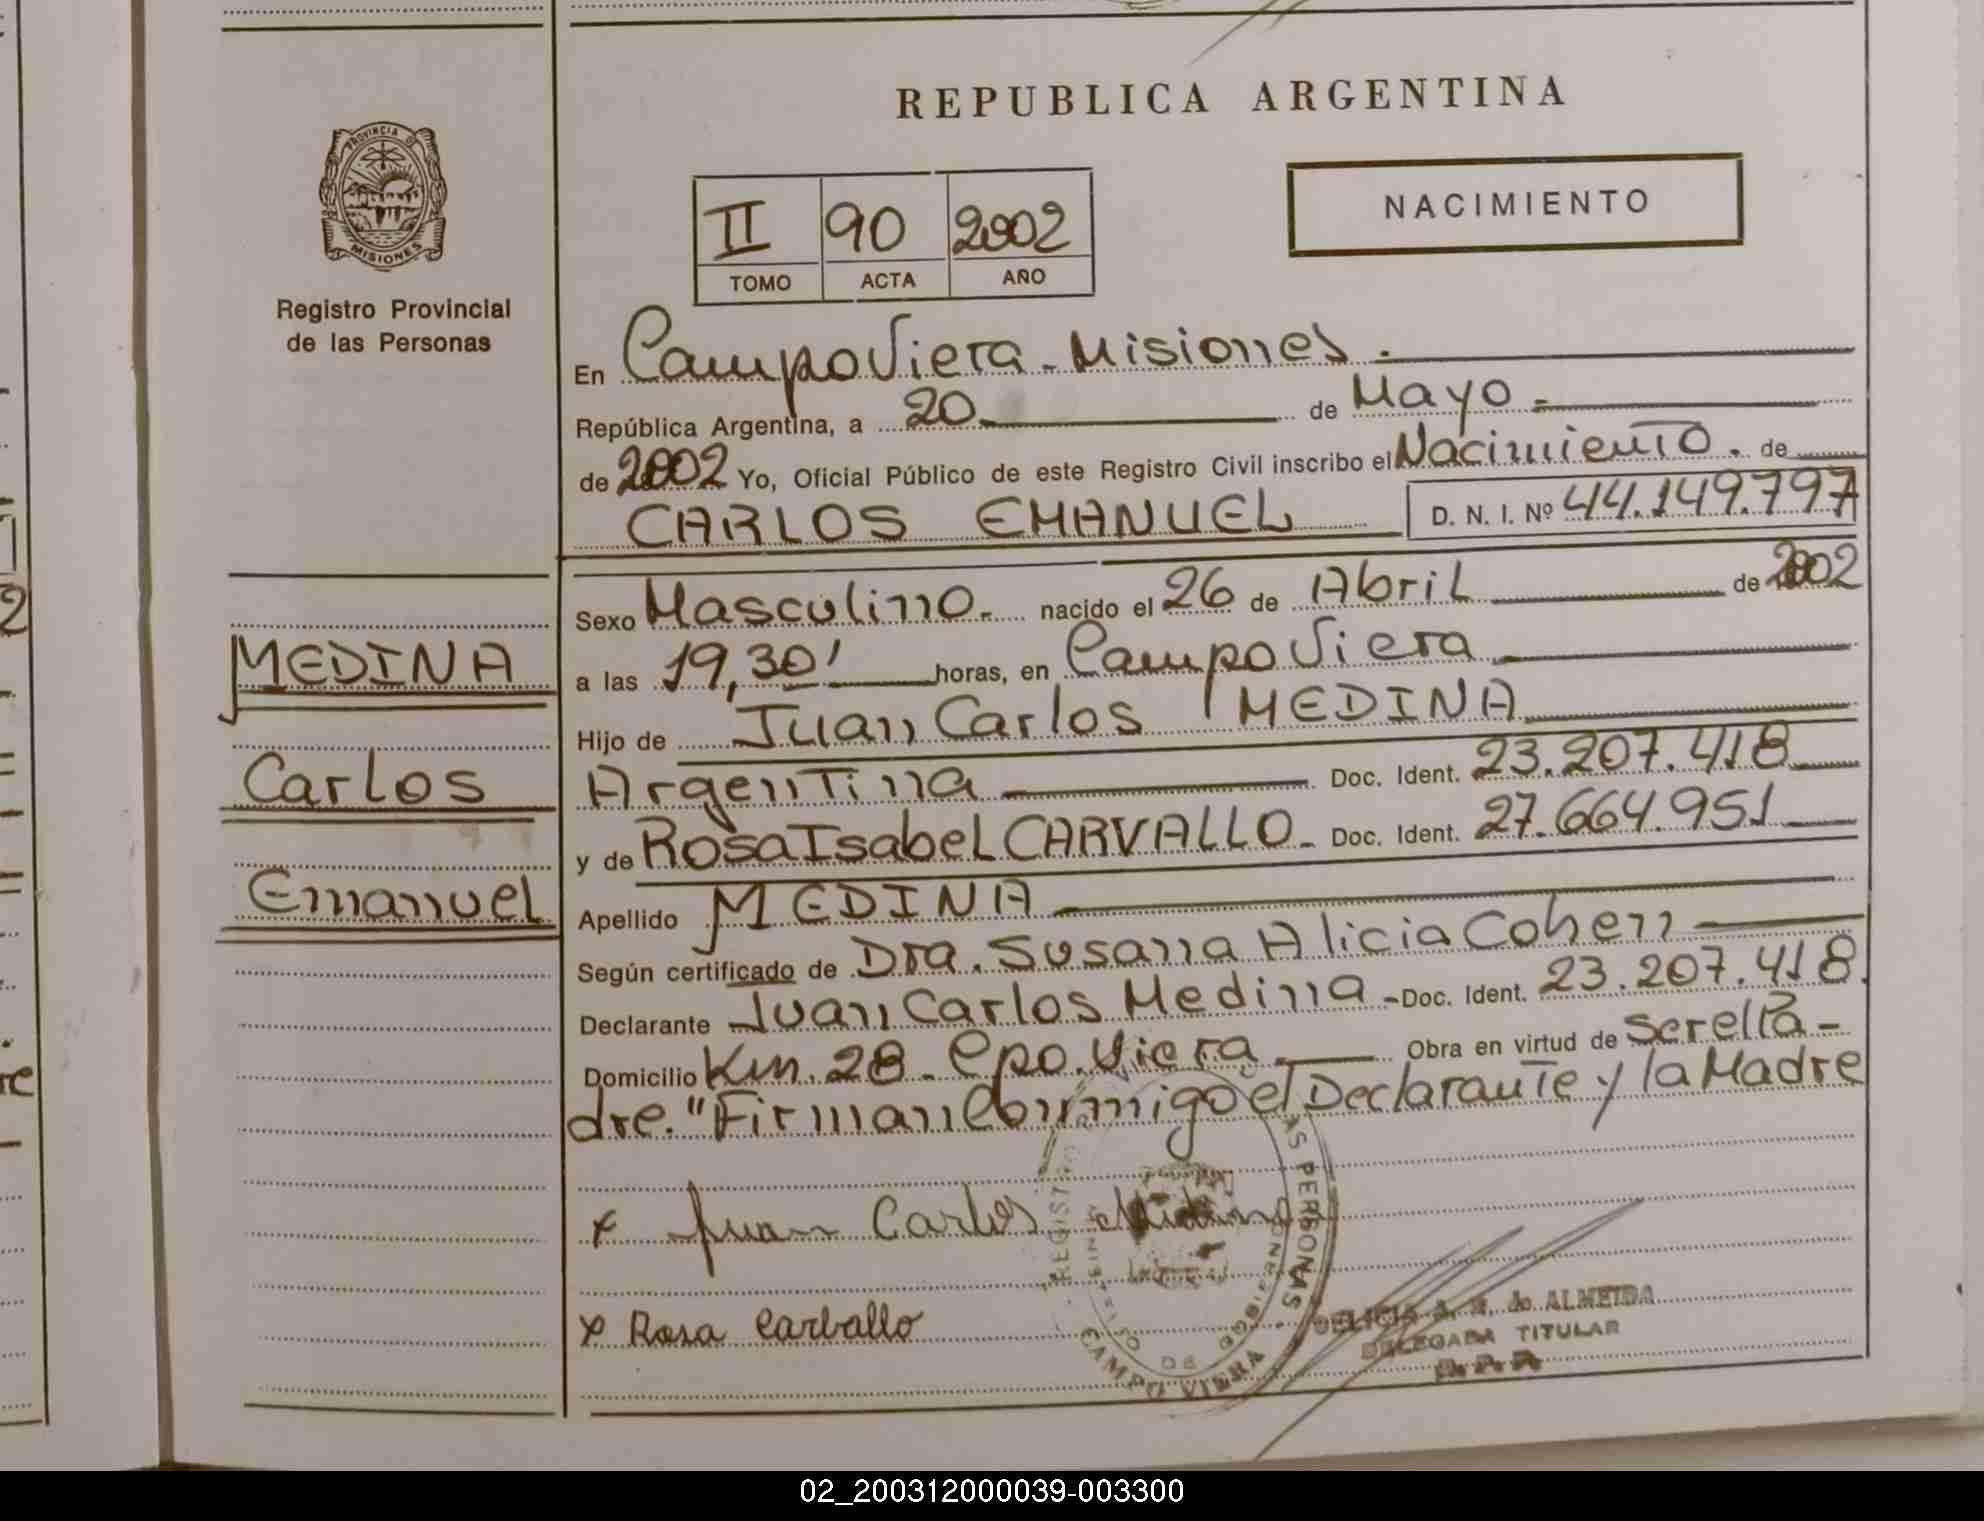 REPUBLICA ARGENTINA
PROVINCIA D
MISIONES
Registro Provincial
de las Personas
II 90 2002
TOMO ACTA AÑO
NACIMIENTO
En Campo Viera - Misiones.
República Argentina, a 20 de Mayo -
de 2002 Yo, Oficial Público de este Registro Civil inscribo el Nacimiento. de
CARLOS EMANUEL D. N. I. Nº 44.149.797
Sexo Masculino. nacido el 26 de Abril de 2002
MEDINA
a las 19,30' horas, en Campo Viera
Hijo de Juan Carlos MEDINA
Carlos
Argentina Doc. Ident. 23.207.418
y de Rosa Isabel CARVALLO - Doc. Ident. 27.664.951
Emanuel
Apellido MEDINA
Según certificado de Dra. Susana Alicia Cohen
Declarante Juan Carlos Medina - Doc. Ident. 23.207.418.
Domicilio Km. 28 - Cpo. Viera. Obra en virtud de ser el Pa-
dre. "Firman Conmigo el Declarante y la Madre
x Juan Carlos Medina
x Rosa Carballo
REGISTRO AS PERSONAS.
CAMPO VIERA
DELICIA A. R. de ALMEIDA
DELEGADA TITULAR
R.P.P.
02_200312000039-003300